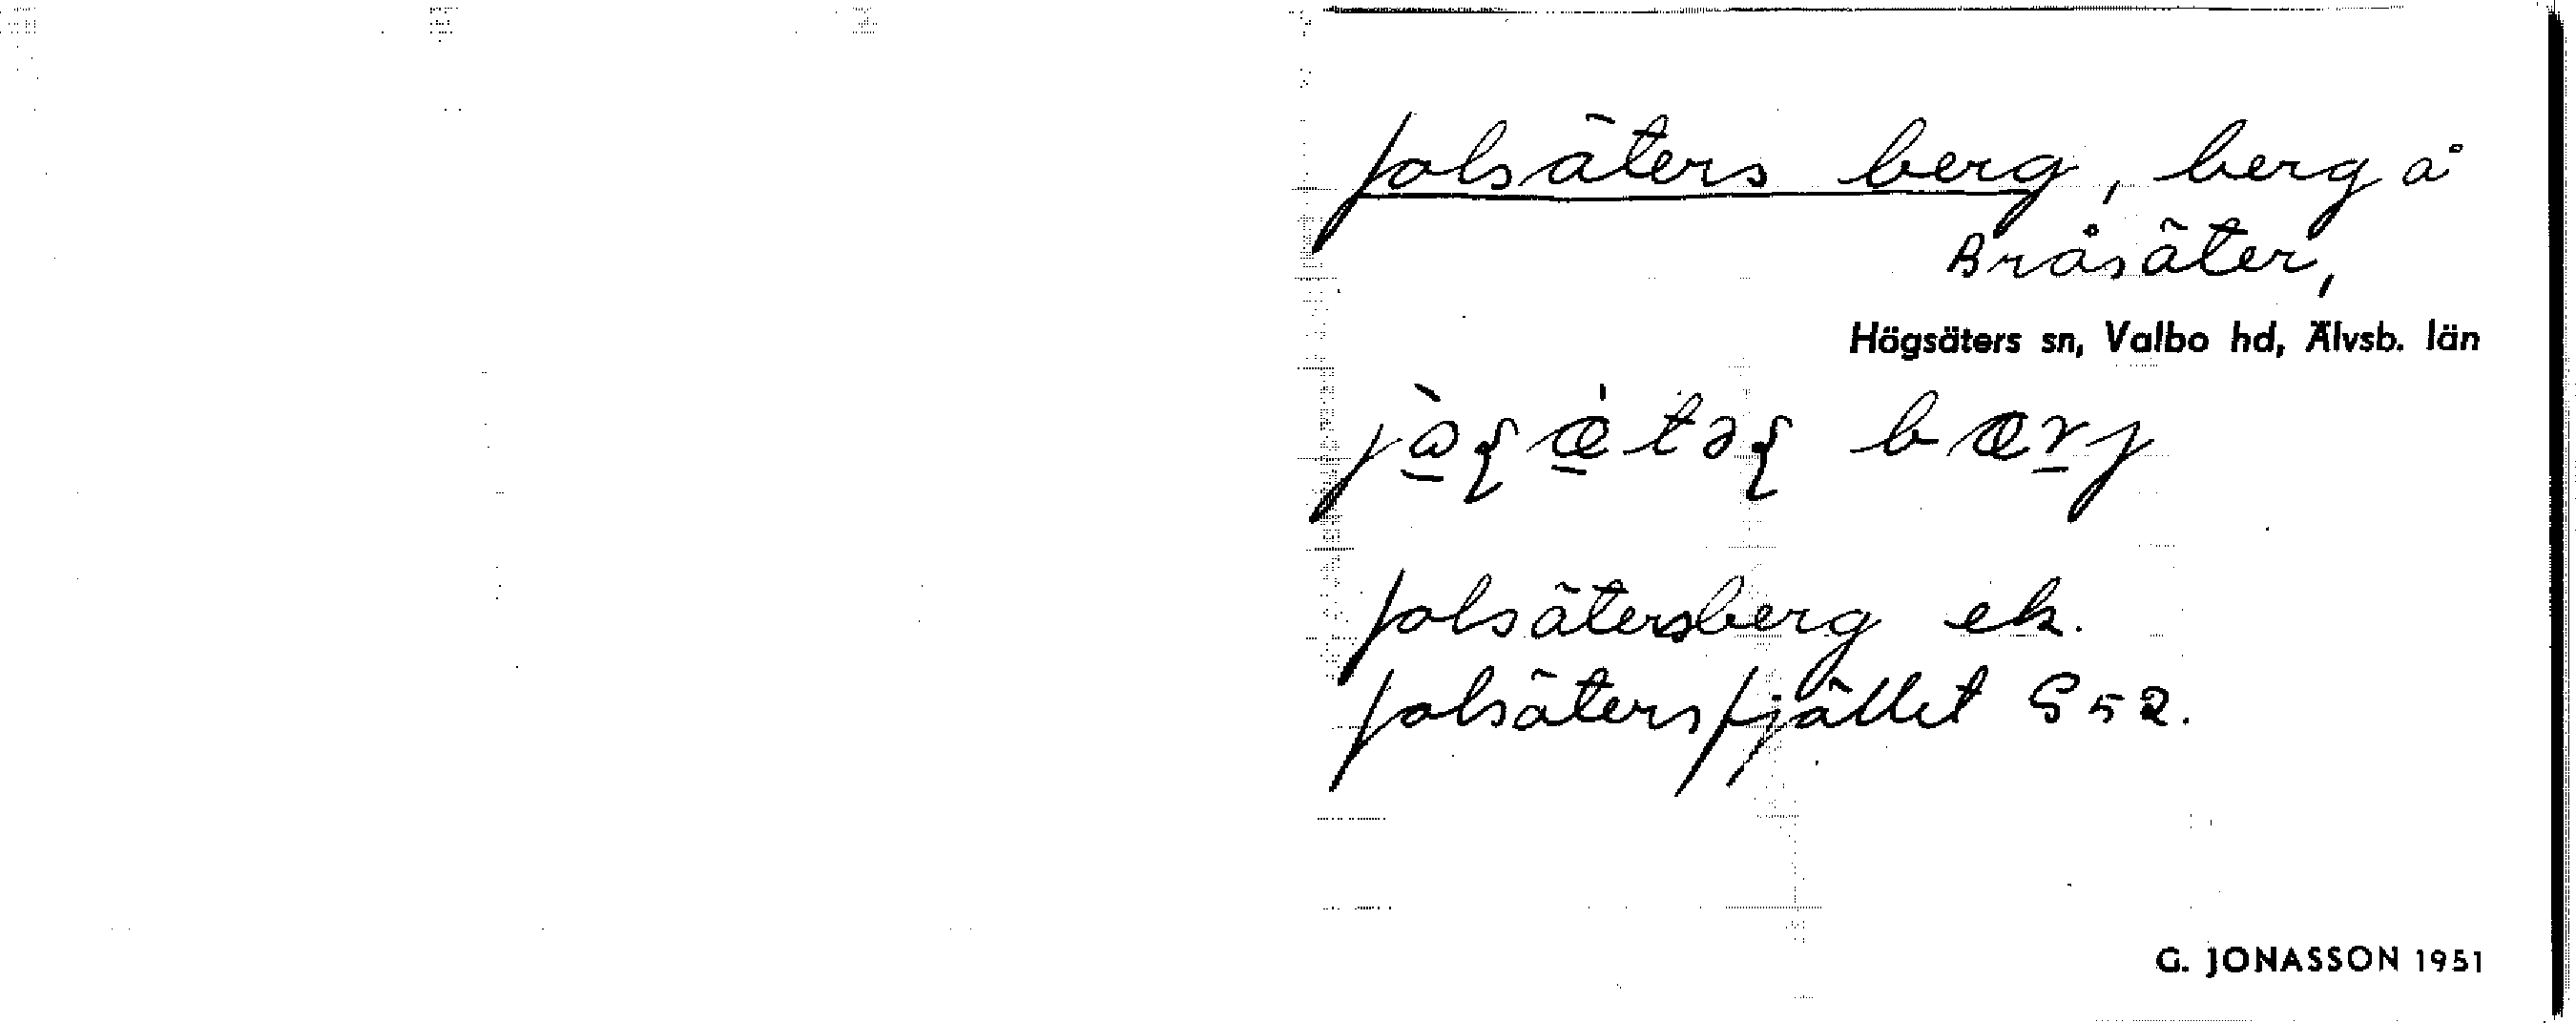 Jolsäters berg, berg å
Bråsäter,
Högsäters sn, Valbo hd, Älvsb. län
Jolsätersberg ek.
Jolsätersfjället S 52.
G. JONASSON 1951